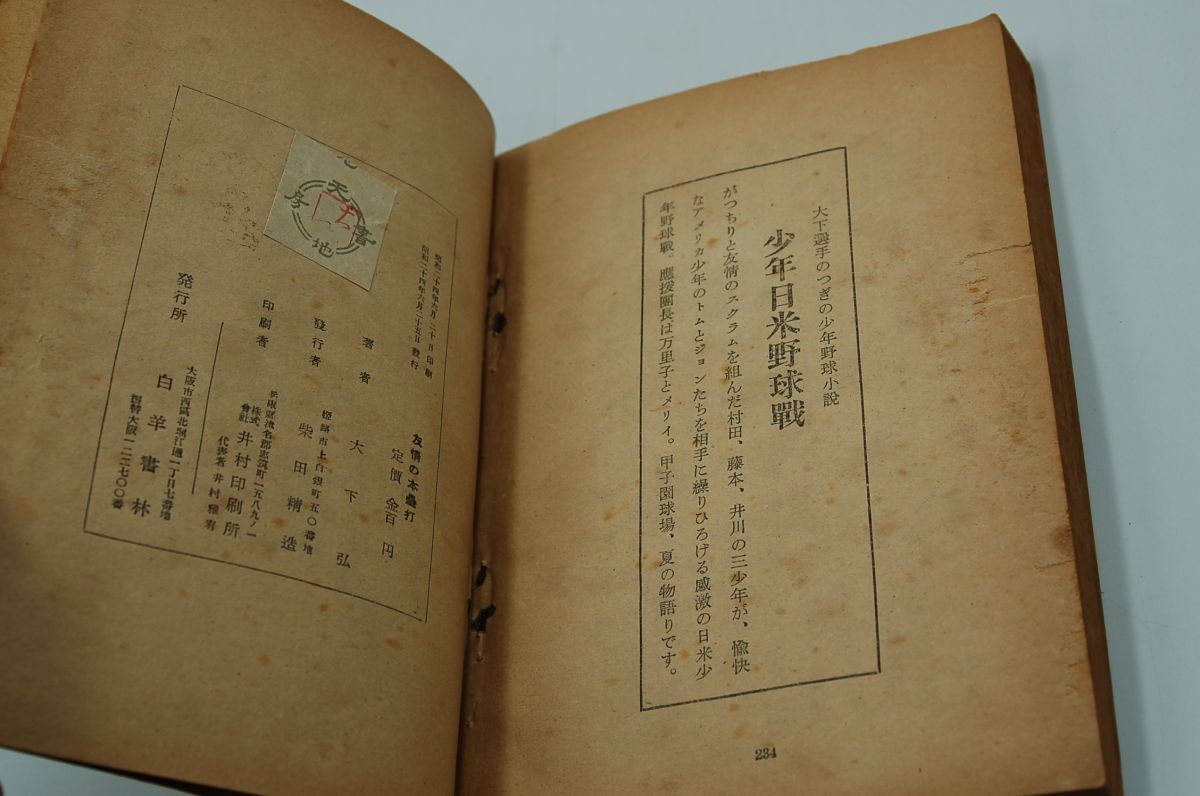 大下選手のつぎの少年野球小説
少年日米野球戰
がつちりと友情のスクラムを組んだ村田、藤本、井川の三少年が、愉快
なアメリカ少年のトムとジョンたちを相手に繰りひろげる感激の日米少
年野球戰。應援團長は万里子とメリイ。甲子園球場、夏の物語りです。
234
友情の本壘打
定價 金百円
昭和二十四年六月二十日印刷
昭和二十四年六月二十五日發行
著者 大下弘
姫路市上白銀町五〇番地
發行者 柴田精造
兵庫縣津名郡志筑町一五八九ノ一
印刷者 株式會社 井村印刷所
代表者 井村雅宥
大阪市西區北堀江通一丁目七番地
発行所 白羊書林
振替大阪一二二七〇〇番
天地書房